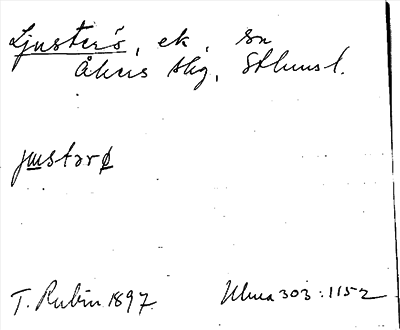 Ljusterö, ek, sn
Åkers skg, Sthlms l.
jɯstərø
T. Rubin 1897. Ulma 303:1152